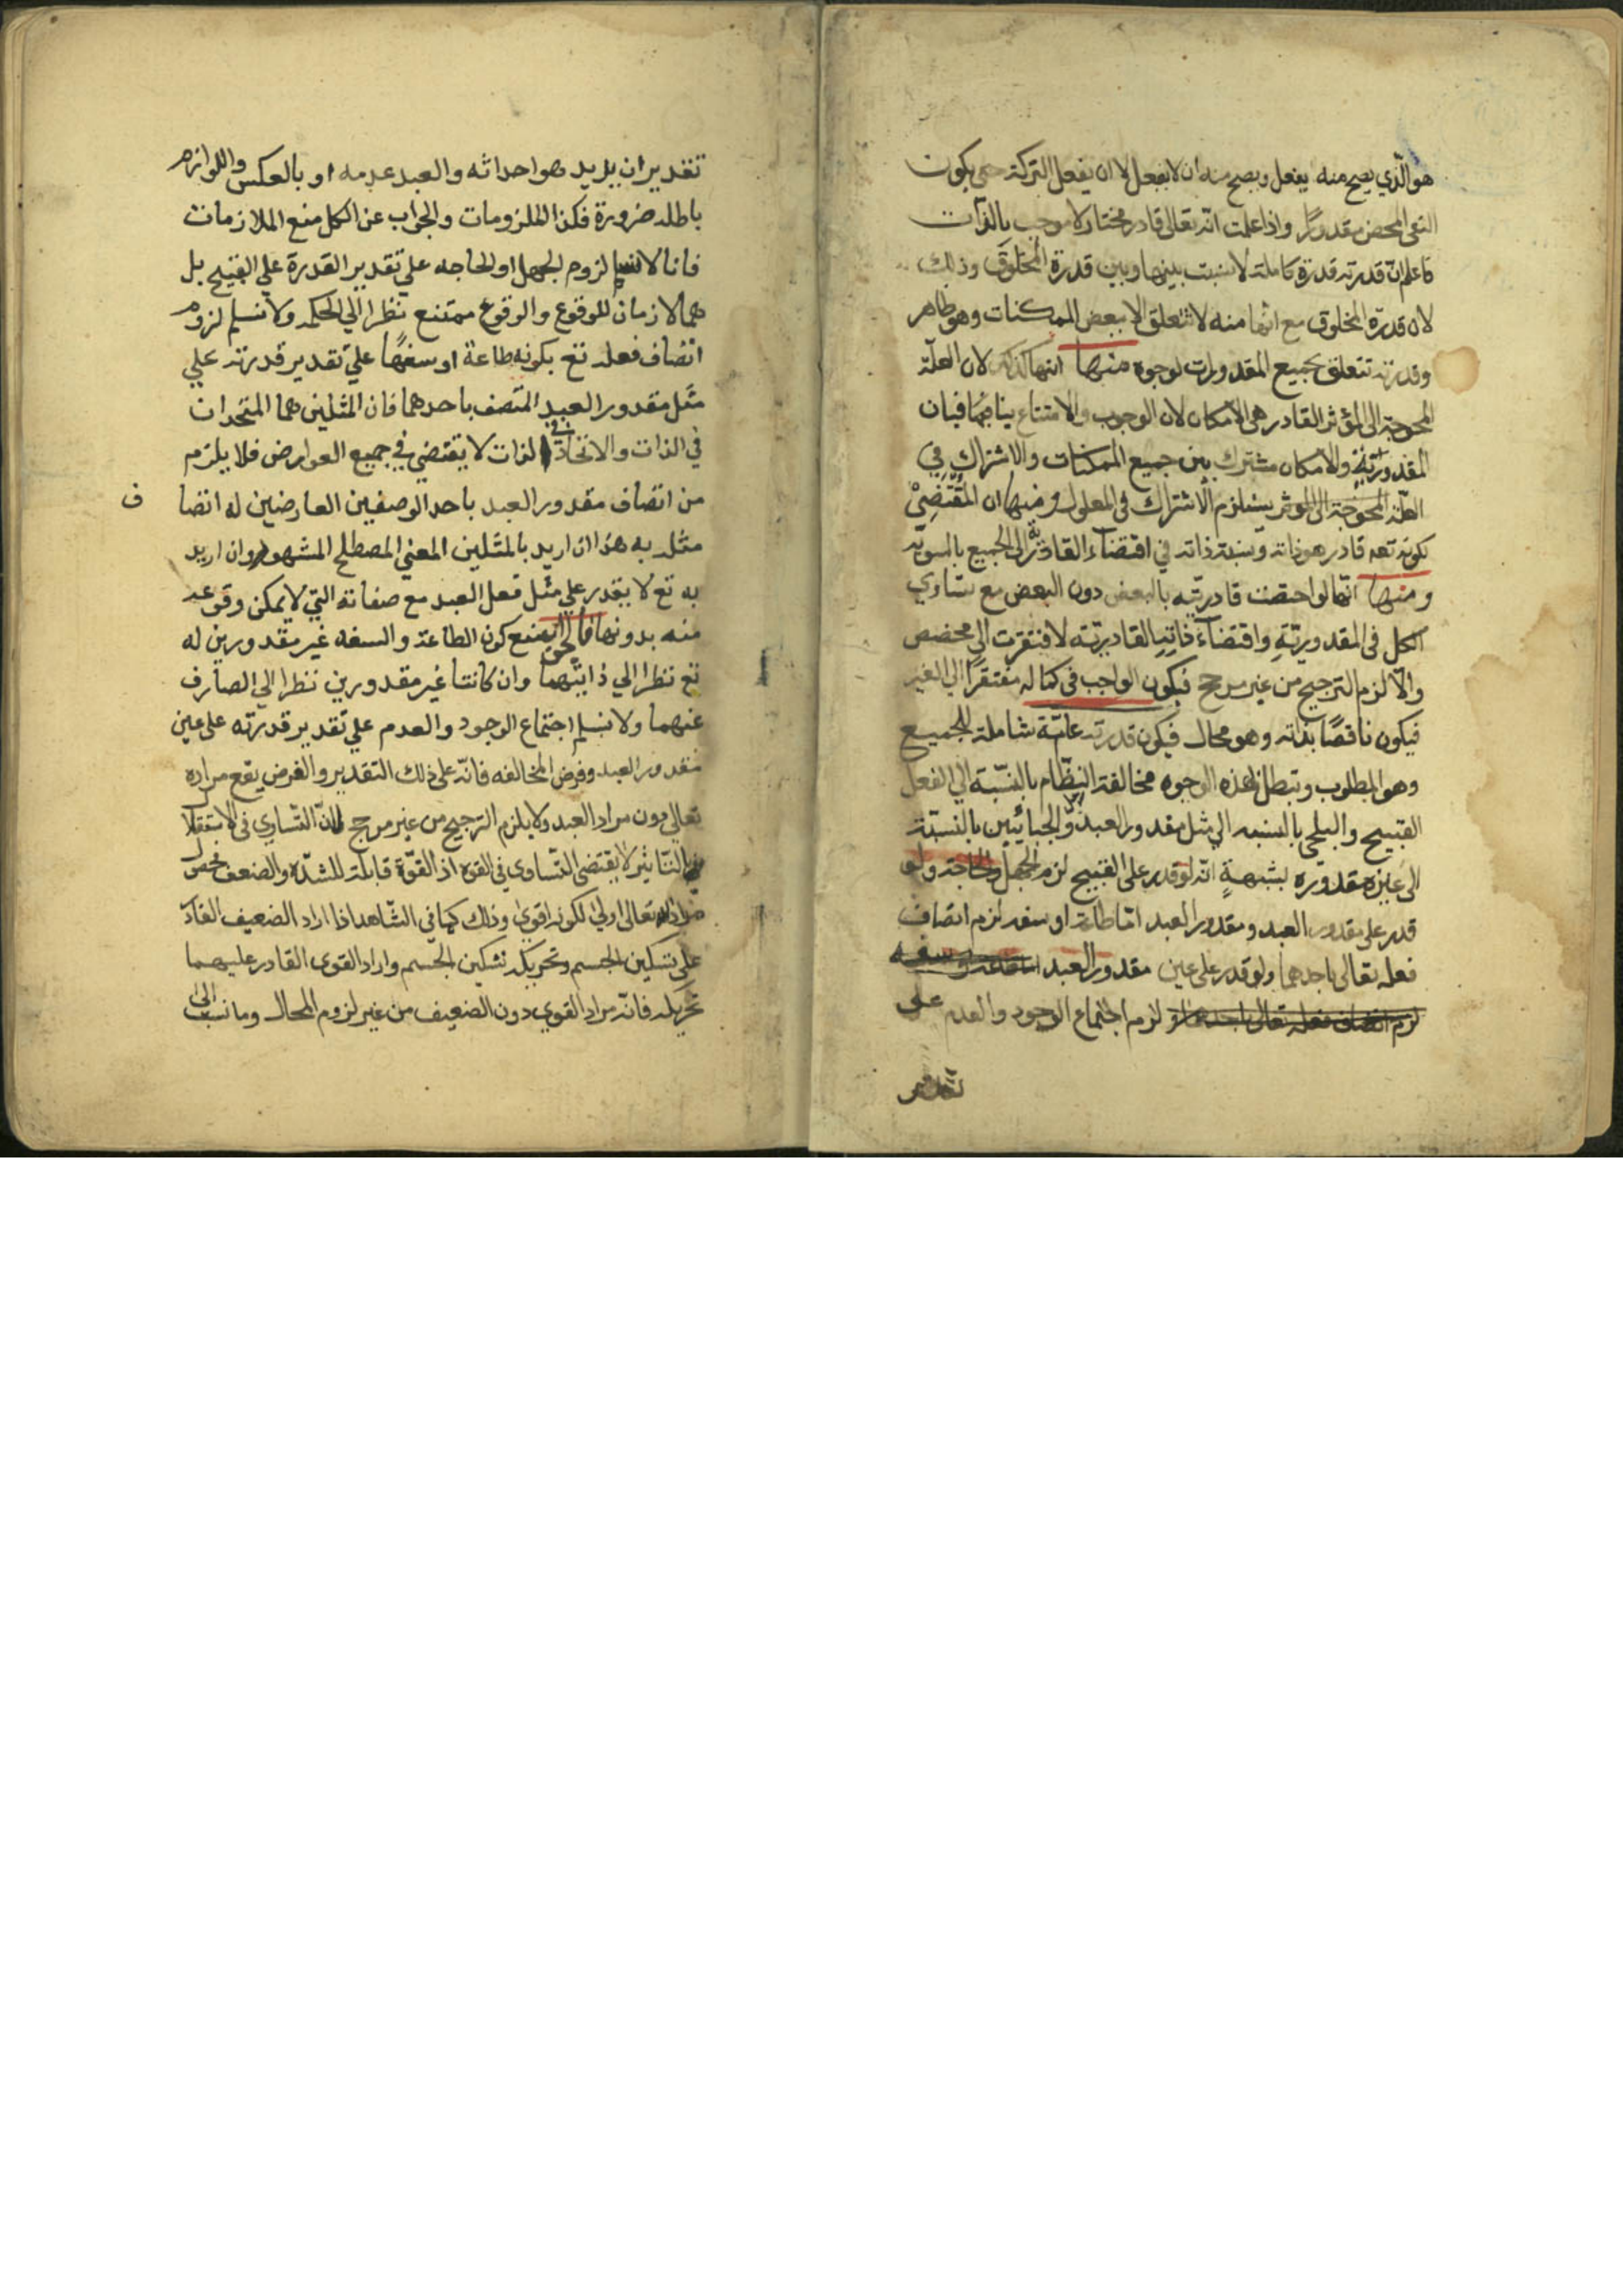 هو الّذي يصح منه يفعل ويصح منه ان لا يفعل لا ان يفعل الترك حتى يكون
النفي المحض مقدورًا واذا علمت انه تعالى قادر مختار لا موجب بالذات
فاعلم انّ قدرته قدرة كاملة لا نسبت بينها وبين قدرة المخلوق وذلك
لان قدرة المخلوق مع انها منه لا تتعلق الا ببعض الممكنات وهو ظاهر
وقدرته تتعلق بجميع المقدورات لوجوه منها لان العلّة
المحوجة الى المؤثر القادر هي الامكان لان الوجوب والامتناع
المقدوريّة والامكان مشترك بين جميع الممكنات والاشتراك في
العلة المحوجة الى الموثر يستلزم الاشتراك في المعلول ومنها ان المقتضي
لكونه تعه قادر هو ذاته ونسبة ذاته في اقتضاء القادريّة الى الجميع بالسويّة
ومنها انها لو اختصت قادريّته بالبعض دون البعض مع تساوي
الكل في المقدوريّة واقتضاء القادريّة لافتقرت الى مخصص
والّا لزم الترجيح من غير مرجح فيكون الواجب في كماله مفتقرًا الى الغير
فيكون ناقصًا بذاته وهو محال فيكون قدرته عامّة شاملة للجميع
وهو المطلوب وتبطل بهذه الوجوه مخالفة النظّام بالنسبة الى الفعل
القبيح والبلخي بالنسبه الى مثل مقدور العبد والجبائيين بالنسبة
الى عين مقدوره بشبهةٍ انه لو قدر على القبيح لزم الجهل والحاجة ولو
قدر على مقدور العبد ومقدور العبد امّا طاعة او سفه لزم اتصاف
فعله تعالى باحدهما ولو قدر على عين مقدور العبد اما طاعة او سفه
لزم اتصاف فعله تعالى باحدهما لزم اجتماع الوجود والعدم على
تقدير
تقدير ان يريد هو احداثه والعبد عدمه او بالعكس واللوازم
باطله ضرورة فكذا الملزومات والجواب عن الكل منع الملازمات
فانا لا نسلم لزوم الجهل او الحاجه علي تقدير القدرة علي القبيح بل
هما لازمان للوقوع والوقوع ممتنع نظرا الي الحكمه ولا نسلم لزوم
اتصاف فعله تع بكونه طاعة او سفهًا علي تقدير قدرته علي
مثل مقدور العبد المتصف باحدهما فان المثلين هما المتحدان
في الذات والاتحاد في الذات لا يقتضي في جميع العوارض فلا يلزم
من اتصاف مقدور العبد باحد الوصفين العارضين له اتصا ف
مثله به هذا ان اريد بالمثلين المعني المصطلح المشهور وان اريد
به تع لا يقدر علي مثل فعل العبد مع صفاته التي لا يمكن وقوعه
منه بدونها فالحق منع كون الطاعة والسفه غير مقدورين له
تع نظرا الي ذاتيهما وان كانتا غير مقدورين نظرا الي الصارف
عنهما ولا نسلم اجتماع الوجود والعدم علي تقدير قدرته على عين
مقدور العبد وفرض المخالفه فانّه على ذلك التقدير والفرض يقع مراده
تعالى دون مراد العبد ولا يلزم الترجيح من غير مرجح لانّ التساوي في الاستقلال
بالتاثير لا يقتضى التساوي في القوة اذ القوّة قابلة للشدّة والضعف
مراده تعالى اولى لكونه اقوى وذلك كما في الشّاهد اذا اراد الضعيف القادر
على تسكين الجسم وتحريكه تسكين الجسم واراد القوى القادر عليهما
تحريكه فانّه مراد القوي دون الضعيف من غير لزوم المحال وما نسب الى